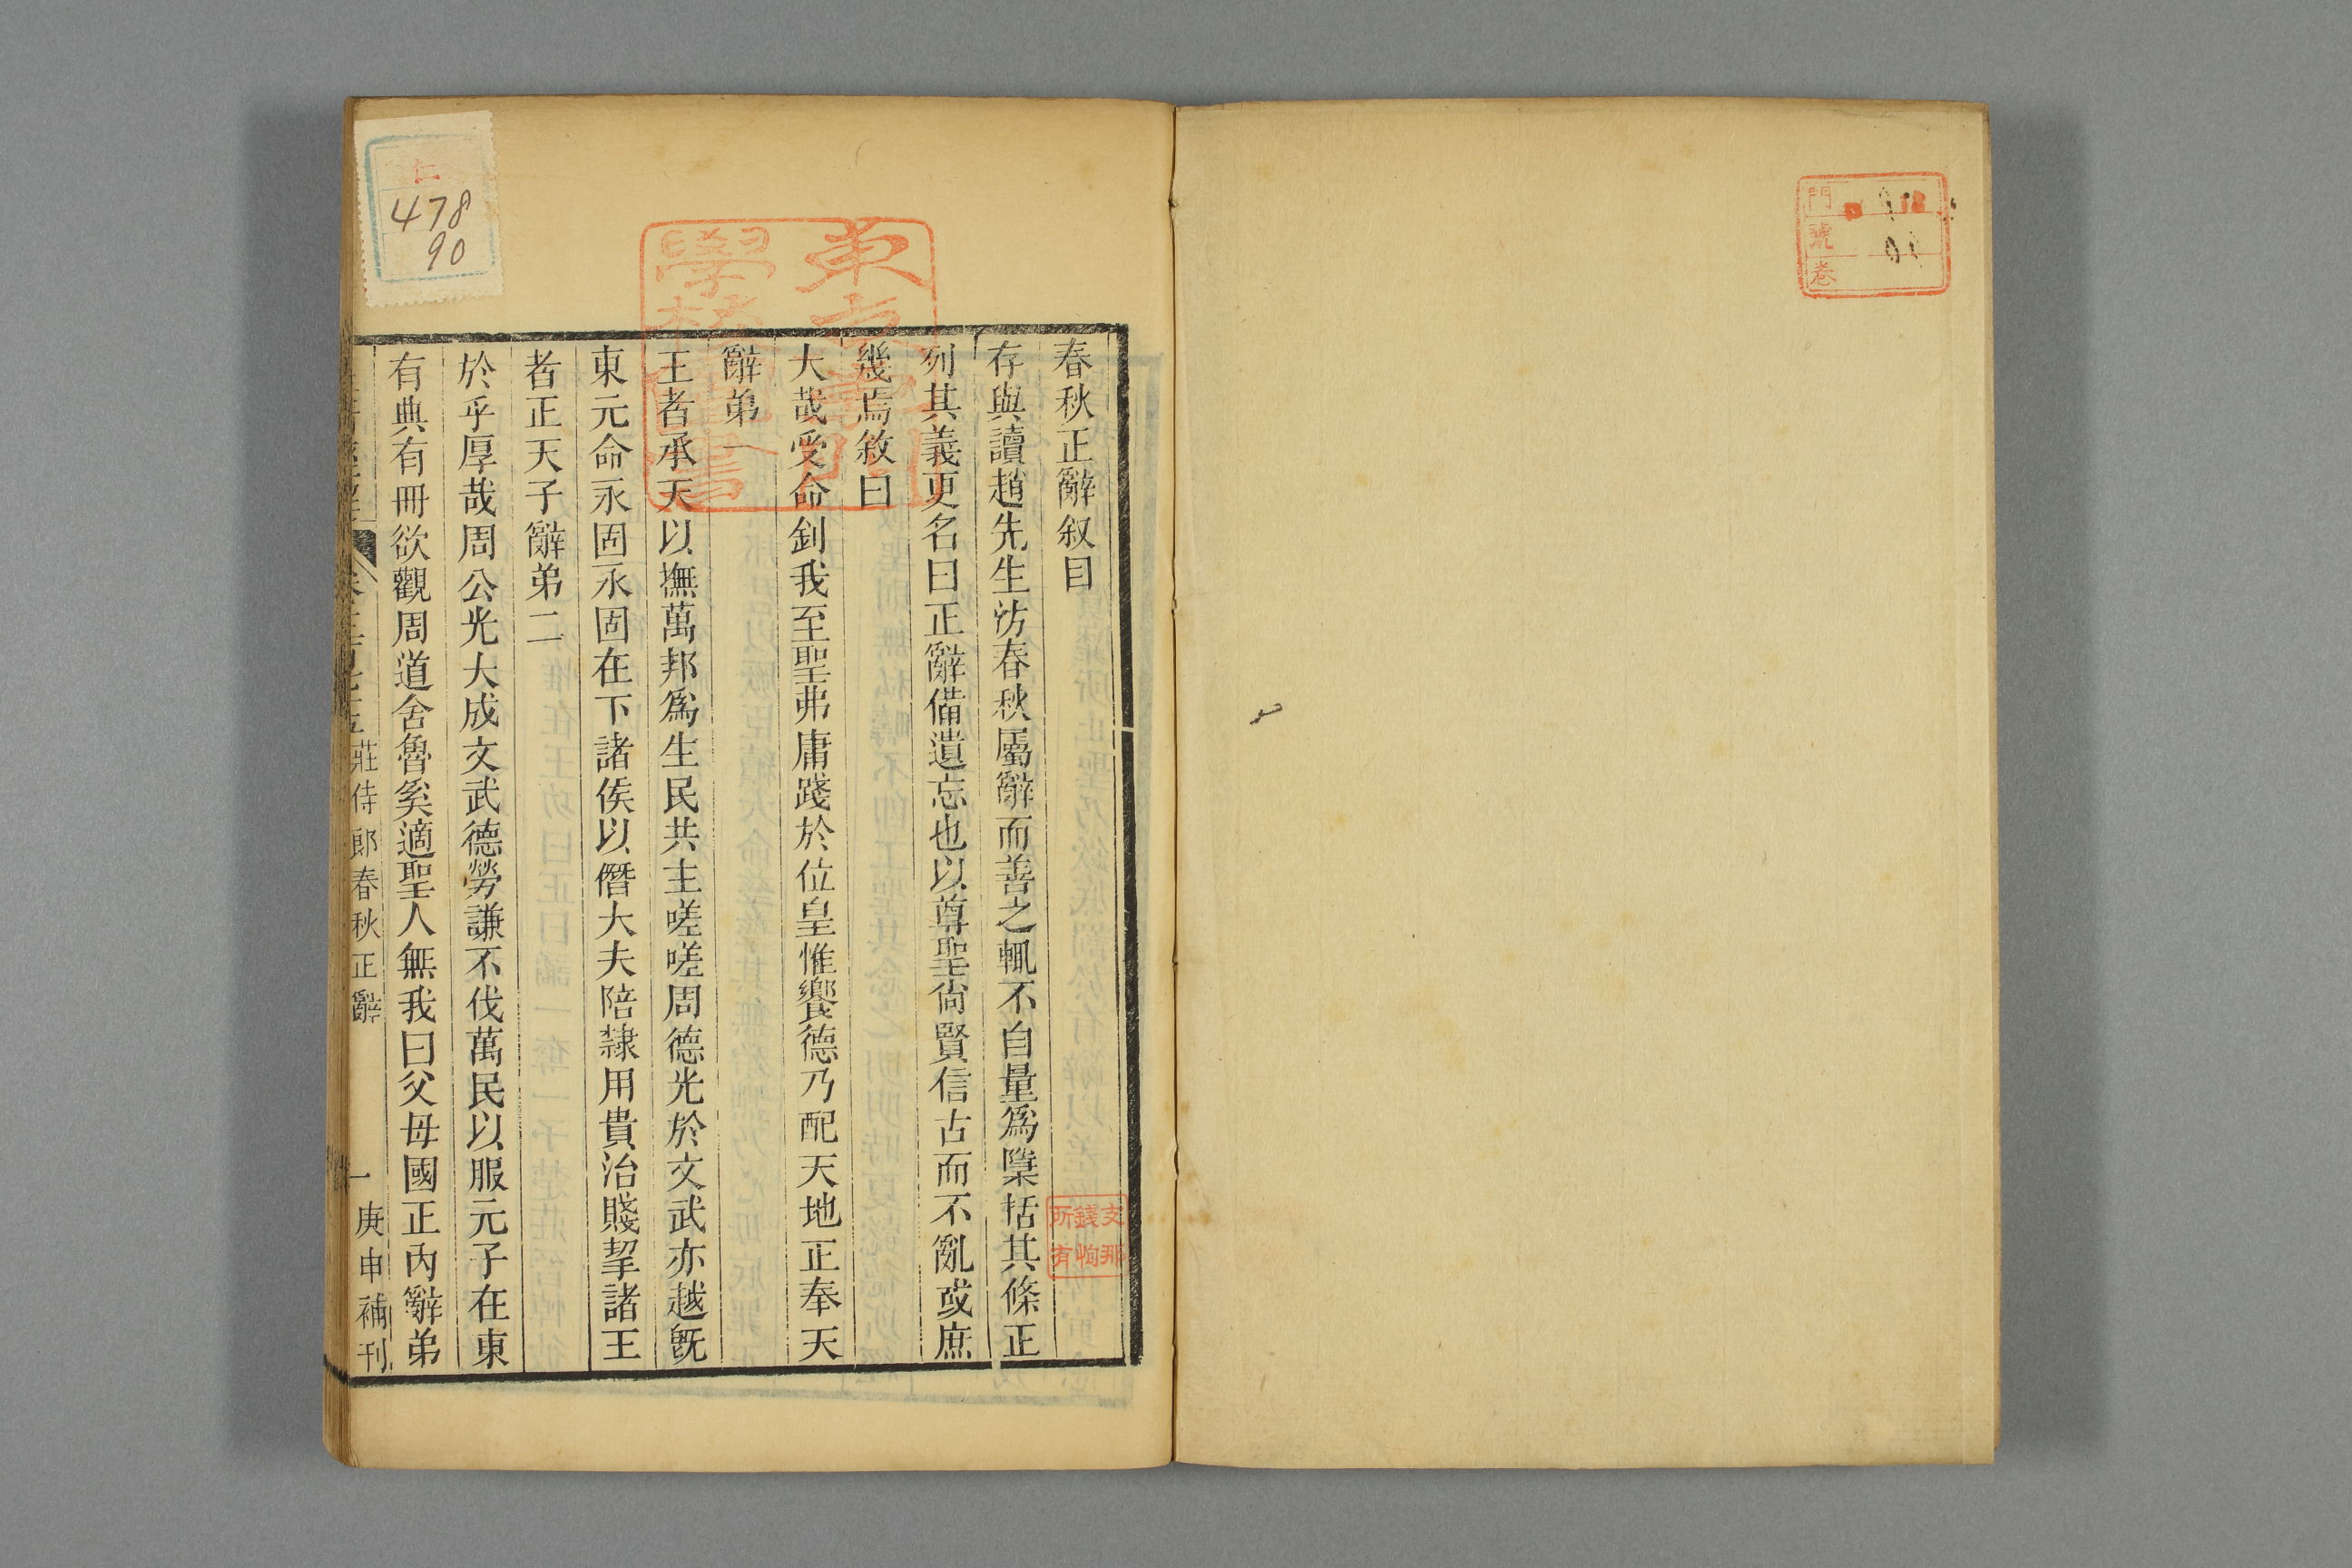 門
號
卷
春秋正辭叙目
存與讀趙先生汸春秋屬辭而善之輒不自量爲檃括其條正
列其義更名曰正辭備遺忘也以尊聖尙賢信古而不亂或庶
幾焉敘曰
大哉受命釗我至聖弗庸踐於位皇惟饗德乃配天地正奉天
辭弟一
王者承天以撫萬邦爲生民共主嗟嗟周德光於文武亦越旣
東元命永固永固在下諸侯以僭大夫陪隸用貴治賤挈諸王
者正天子辭弟二
於乎厚哉周公光大成文武德勞謙不伐萬民以服元子在東
有典有冊欲觀周道舍魯奚適聖人無我曰父母國正內辭弟
莊侍郎春秋正辭
一
庚申補刊
仁
478
90
支那
錢恂
所有